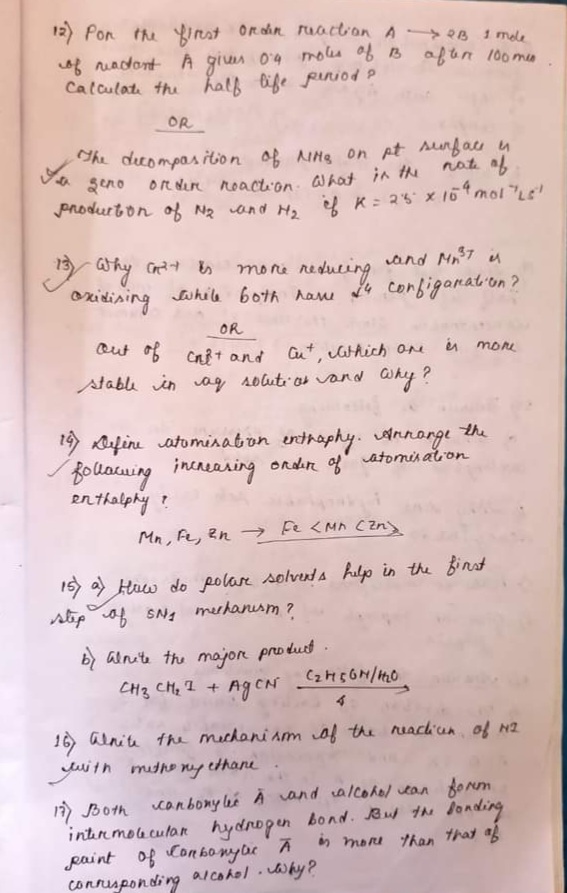 12) For the first order reaction A → 2B 1 mole
of reactant A gives 0.4 moles of B after 100 min
Calculate the half life period?
OR
The decomposition of NH3 on pt surface is
a zero order reaction. What is the rate of
production of N2 and H2 if K = 2.5 x 10⁻⁴ mol⁻¹ L S⁻¹
13) Why Cr²⁺ is more reducing and Mn³⁺ is
oxidising while both have d4 configaration?
OR
Out of Cu²⁺ and Cu⁺, which one is more
stable in aq solution and why?
14) Define atomisation enthaphy. Arrange the
following increasing order of atomisation
enthalphy?
Mn, Fe, Zn → Fe < Mn < Zn
15) a) How do polar solvents help in the first
step of SN1 mechanism?
b) Write the major product.
CH3 CH2 I + AgCN C2H5OH/H2O
16) Write the mechanism of the reaction of HI
with methoxyethane.
17) Both carbonylic A and alcohol can form
intermolecular hydrogen bond. But the
point of Carbonylic A is more than that of
corresponding alcohol. Why?